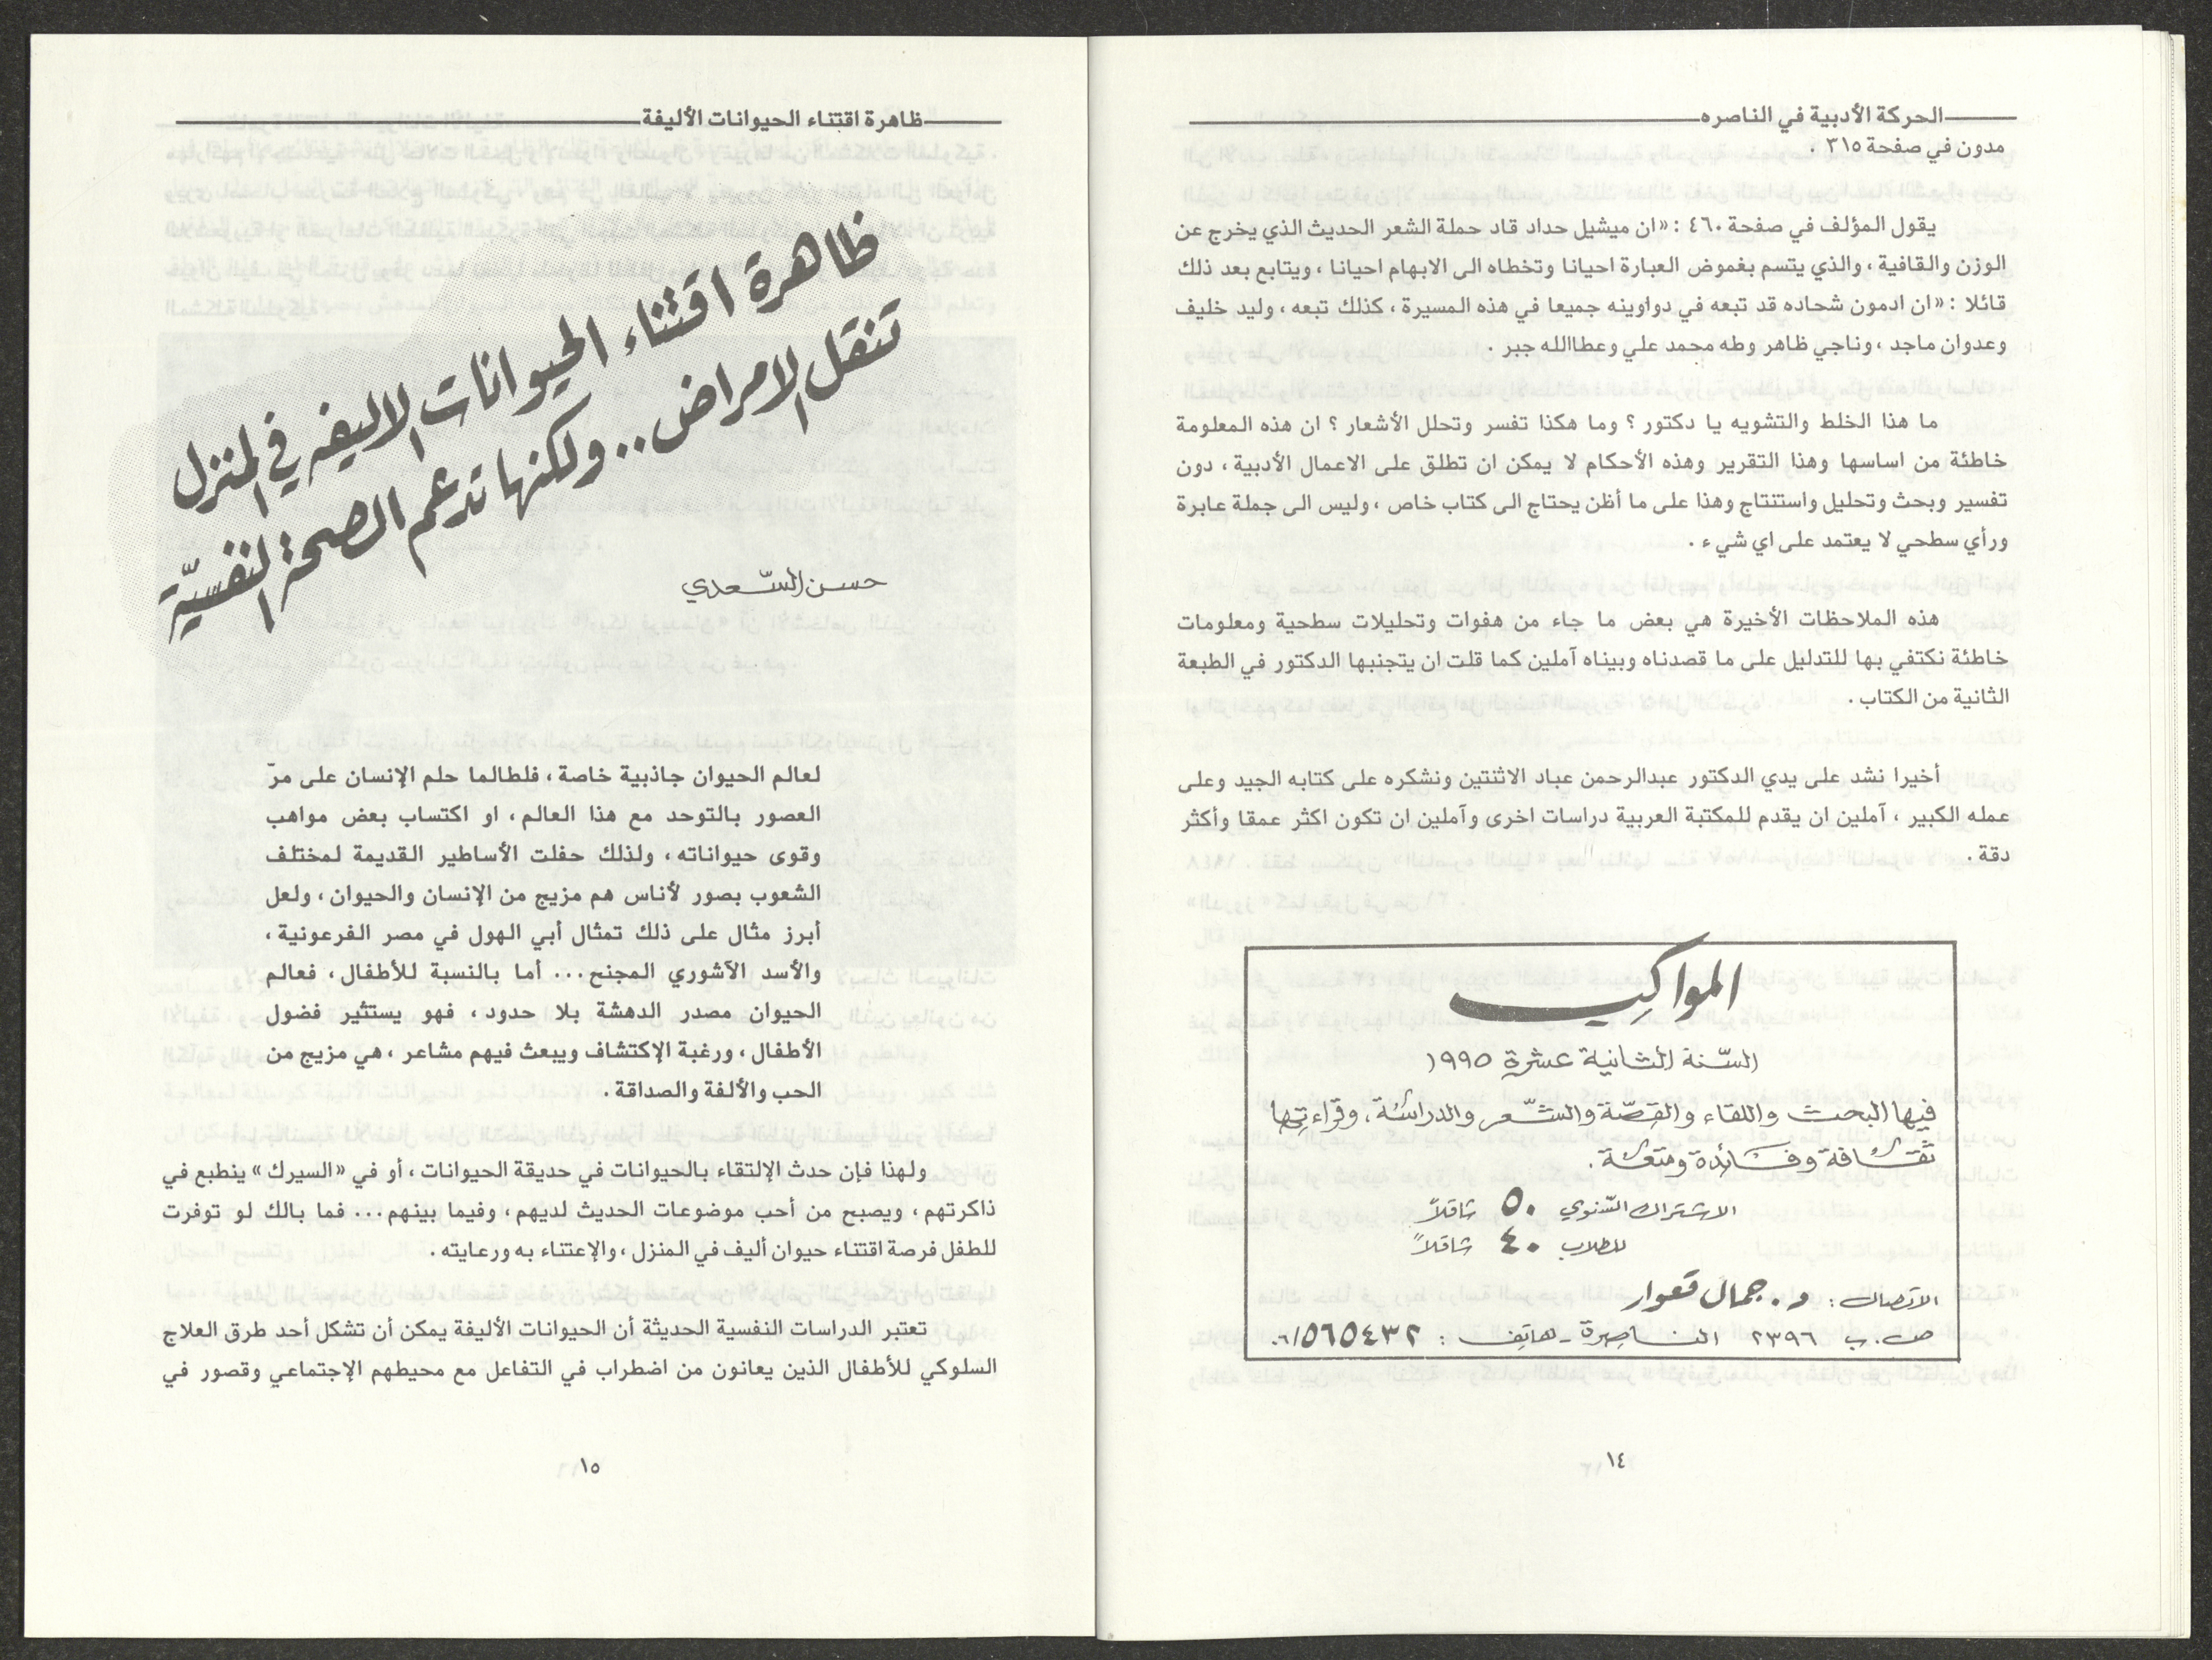 الحركة الأدبية في الناصره
مدون في صفحة ٣١٥ .
يقول المؤلف في صفحة ٤٦٠ : «ان ميشيل حداد قاد حملة الشعر الحديث الذي يخرج عن
الوزن والقافية ، والذي يتسم بغموض العبارة احيانا وتخطاه الى الابهام احيانا ، ويتابع بعد ذلك
قائلا : «ان ادمون شحاده قد تبعه في دواوينه جميعا في هذه المسيرة ، كذلك تبعه ، وليد خليف
وعدوان ماجد ، وناجي ظاهر وطه محمد علي وعطاالله جبر .
ما هذا الخلط والتشويه يا دكتور ؟ وما هكذا تفسر وتحلل الأشعار ؟ ان هذه المعلومة
خاطئة من اساسها وهذا التقرير وهذه الأحكام لا يمكن ان تطلق على الاعمال الأدبية ، دون
تفسير وبحث وتحليل واستنتاج وهذا على ما أظن يحتاج الى كتاب خاص ، وليس الى جملة عابرة
ورأي سطحي لا يعتمد على اي شيء .
هذه الملاحظات الأخيرة هي بعض ما جاء من هفوات وتحليلات سطحية ومعلومات
خاطئة نكتفي بها للتدليل على ما قصدناه وبيناه آملين كما قلت ان يتجنبها الدكتور في الطبعة
الثانية من الكتاب .
أخيرا نشد على يدي الدكتور عبدالرحمن عباد الاثنتين ونشكره على كتابه الجيد وعلى
عمله الكبير ، آملين ان يقدم للمكتبة العربية دراسات اخرى وآملين ان تكون اكثر عمقا وأكثر
دقة .
المواكب
السّنة الثانية عشرة ١٩٩٥
فيها البحث واللقاء والقصّة والشّعر والدراسة، وقراءتها
ثقافة وفائدة ومتعة.
الاشتراك السّنوي ٥٠ شاقلاً
للطلاب ٤٠ شاقلاً
الاتصال: د. جمال قعوار
ص.ب ٢٣٩٦ الناصرة - هاتف : ٠٦/٥٦٥٤٣٢
١٤
ظاهرة اقتناء الحيوانات الأليفة
ظاهرة اقتناء الحيوانات الاليفه في المنزل
تنقل الامراض .. ولكنها تدعم الصحة النفسيّة
حسن السّعدي
لعالم الحيوان جاذبية خاصة ، فلطالما حلم الإنسان على مرّ
العصور بالتوحد مع هذا العالم ، او اكتساب بعض مواهب
وقوى حيواناته ، ولذلك حفلت الأساطير القديمة لمختلف
الشعوب بصور لأناس هم مزيج من الإنسان والحيوان ، ولعل
أبرز مثال على ذلك تمثال أبي الهول في مصر الفرعونية ،
والأسد الآشوري المجنح ... أما بالنسبة للأطفال ، فعالم
الحيوان مصدر الدهشة بلا حدود ، فهو يستثير فضول
الأطفال ، ورغبة الإكتشاف ويبعث فيهم مشاعر ، هي مزيج من
الحب والألفة والصداقة .
ولهذا فإن حدث الإلتقاء بالحيوانات في حديقة الحيوانات ، أو في «السيرك» ينطبع في
ذاكرتهم ، ويصبح من أحب موضوعات الحديث لديهم ، وفيما بينهم ... فما بالك لو توفرت
للطفل فرصة اقتناء حيوان أليف في المنزل ، والإعتناء به ورعايته .
تعتبر الدراسات النفسية الحديثة أن الحيوانات الأليفة يمكن أن تشكل أحد طرق العلاج
السلوكي للأطفال الذين يعانون من اضطراب في التفاعل مع محيطهم الإجتماعي وقصور في
١٥